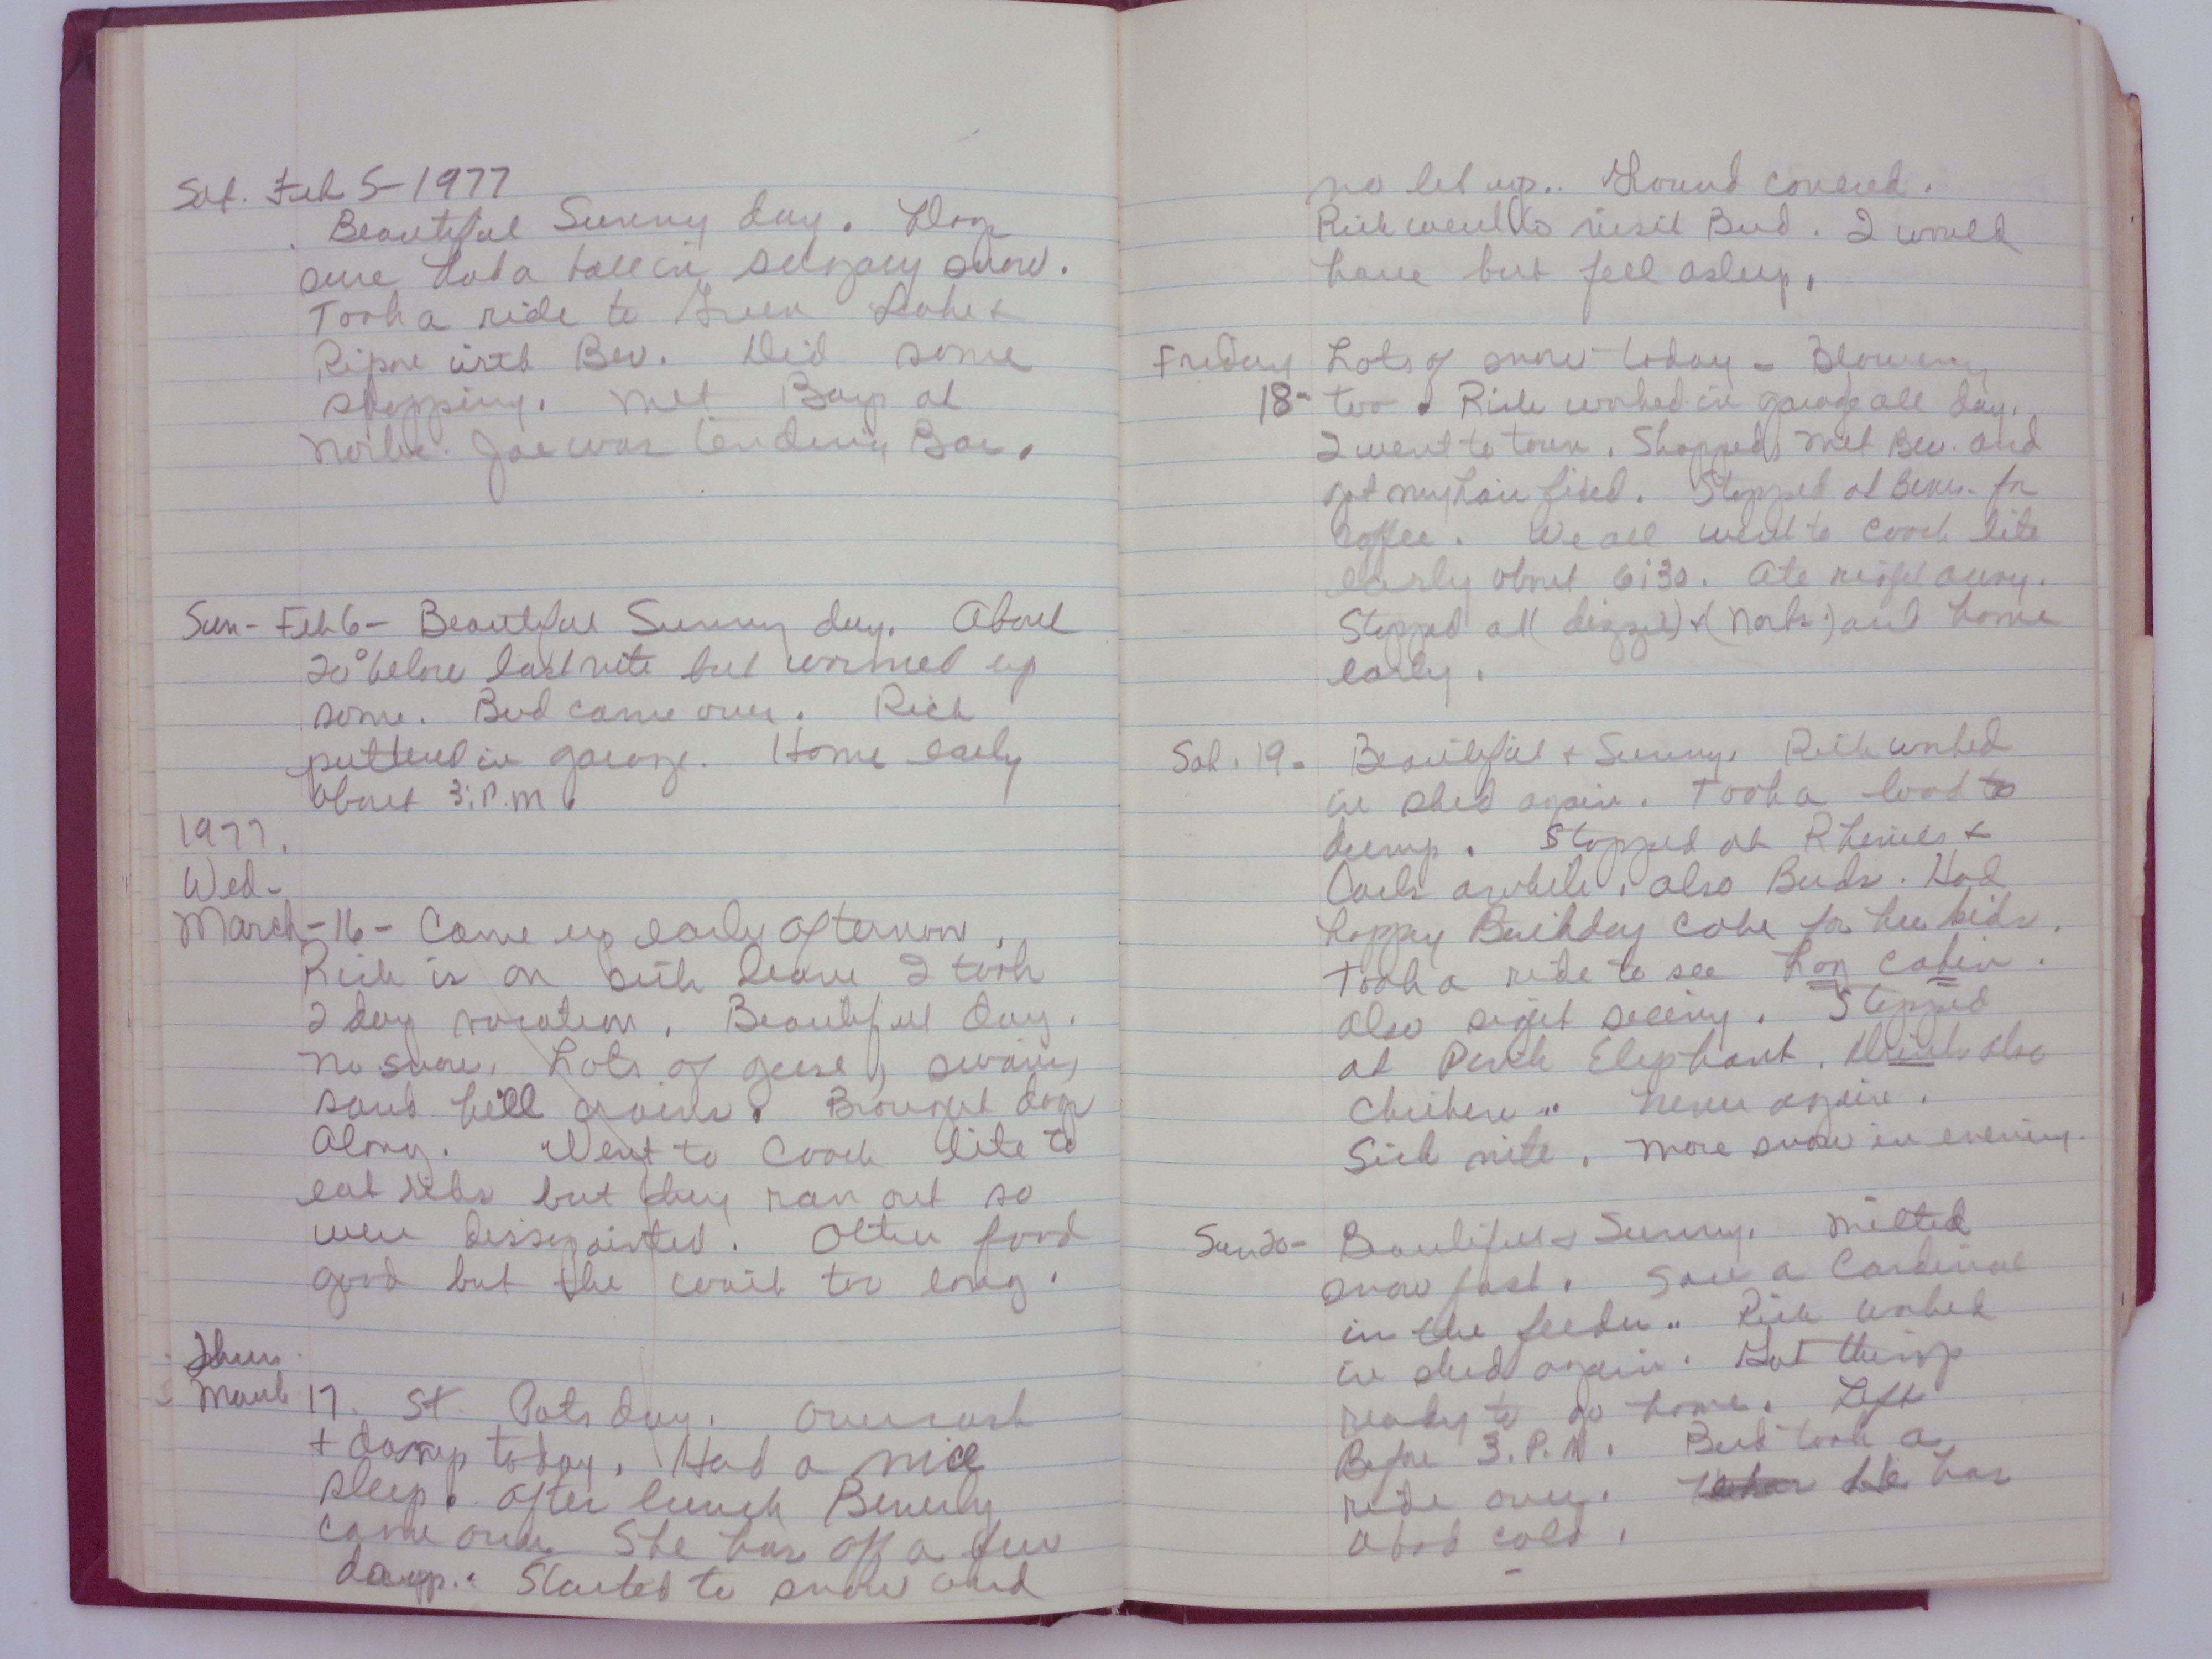 Sat. Feb 5-1977
Beautiful Sunny day. Dog
sure had a ball in sugary snow.
Took a ride to Green Lake +
Ripon with Bev. Did some
shopping. Met Boys at
Norbs. Joe was tending Bar.
Sun- Feb 6- Beautiful Sunny day. About
20° below last nite but warmed up
some. Bud came over. Rich
puttered in garage. Home early
about 3:P.M.
1977.
Wed-
March-16- Came up early afternoon.
Rich is on sick leave I took
2 day vacation. Beautiful day.
No snow. Lots of geese, swans,
sand hill cranes. Brought dog
along. Went to Coach lite to
eat ribs but they ran out so
were dissapointed. Other food
good but the wait too long.
Thurs.
March 17. St. Pats day. Overcast
+ damp today. Had a nice
sleep. After lunch Beverly
came over. She has off a few
days.. Started to snow and
no let up.. Ground covered.
Rich went to visit Bud. I would
have but fell asleep.
Friday Lots of snow today - Blowing
18- too. Rich worked in garage all day.
I went to town. Shopped, met Bev. and
got my hair fixed. Stopped at Bevs. for
coffee. We all went to Coach lite
early about 6:30. Ate right away.
Stopped at (        ) + (Norbs.) and home
early.
Sat. 19- Beautiful + Sunny. Rich worked
in shed again. Took a load to
dump. Stopped at           +
Carls awhile, also Buds. Had
happy Birthday cake for her kids.
Took a ride to see Log cabin.
Also sight seeing. Stopped
at Pink Elephant. Drinks also
chicken.. Never again.
Sick nite. More snow in evening.
Sun 20- Beautiful + Sunny. Melted
snow fast. Saw a Cardinal
in the feeder.. Rich worked
in shed again. Got things
ready to go home. Left
Before 3.P.M. Bud took a
ride over. He has
a bad cold.